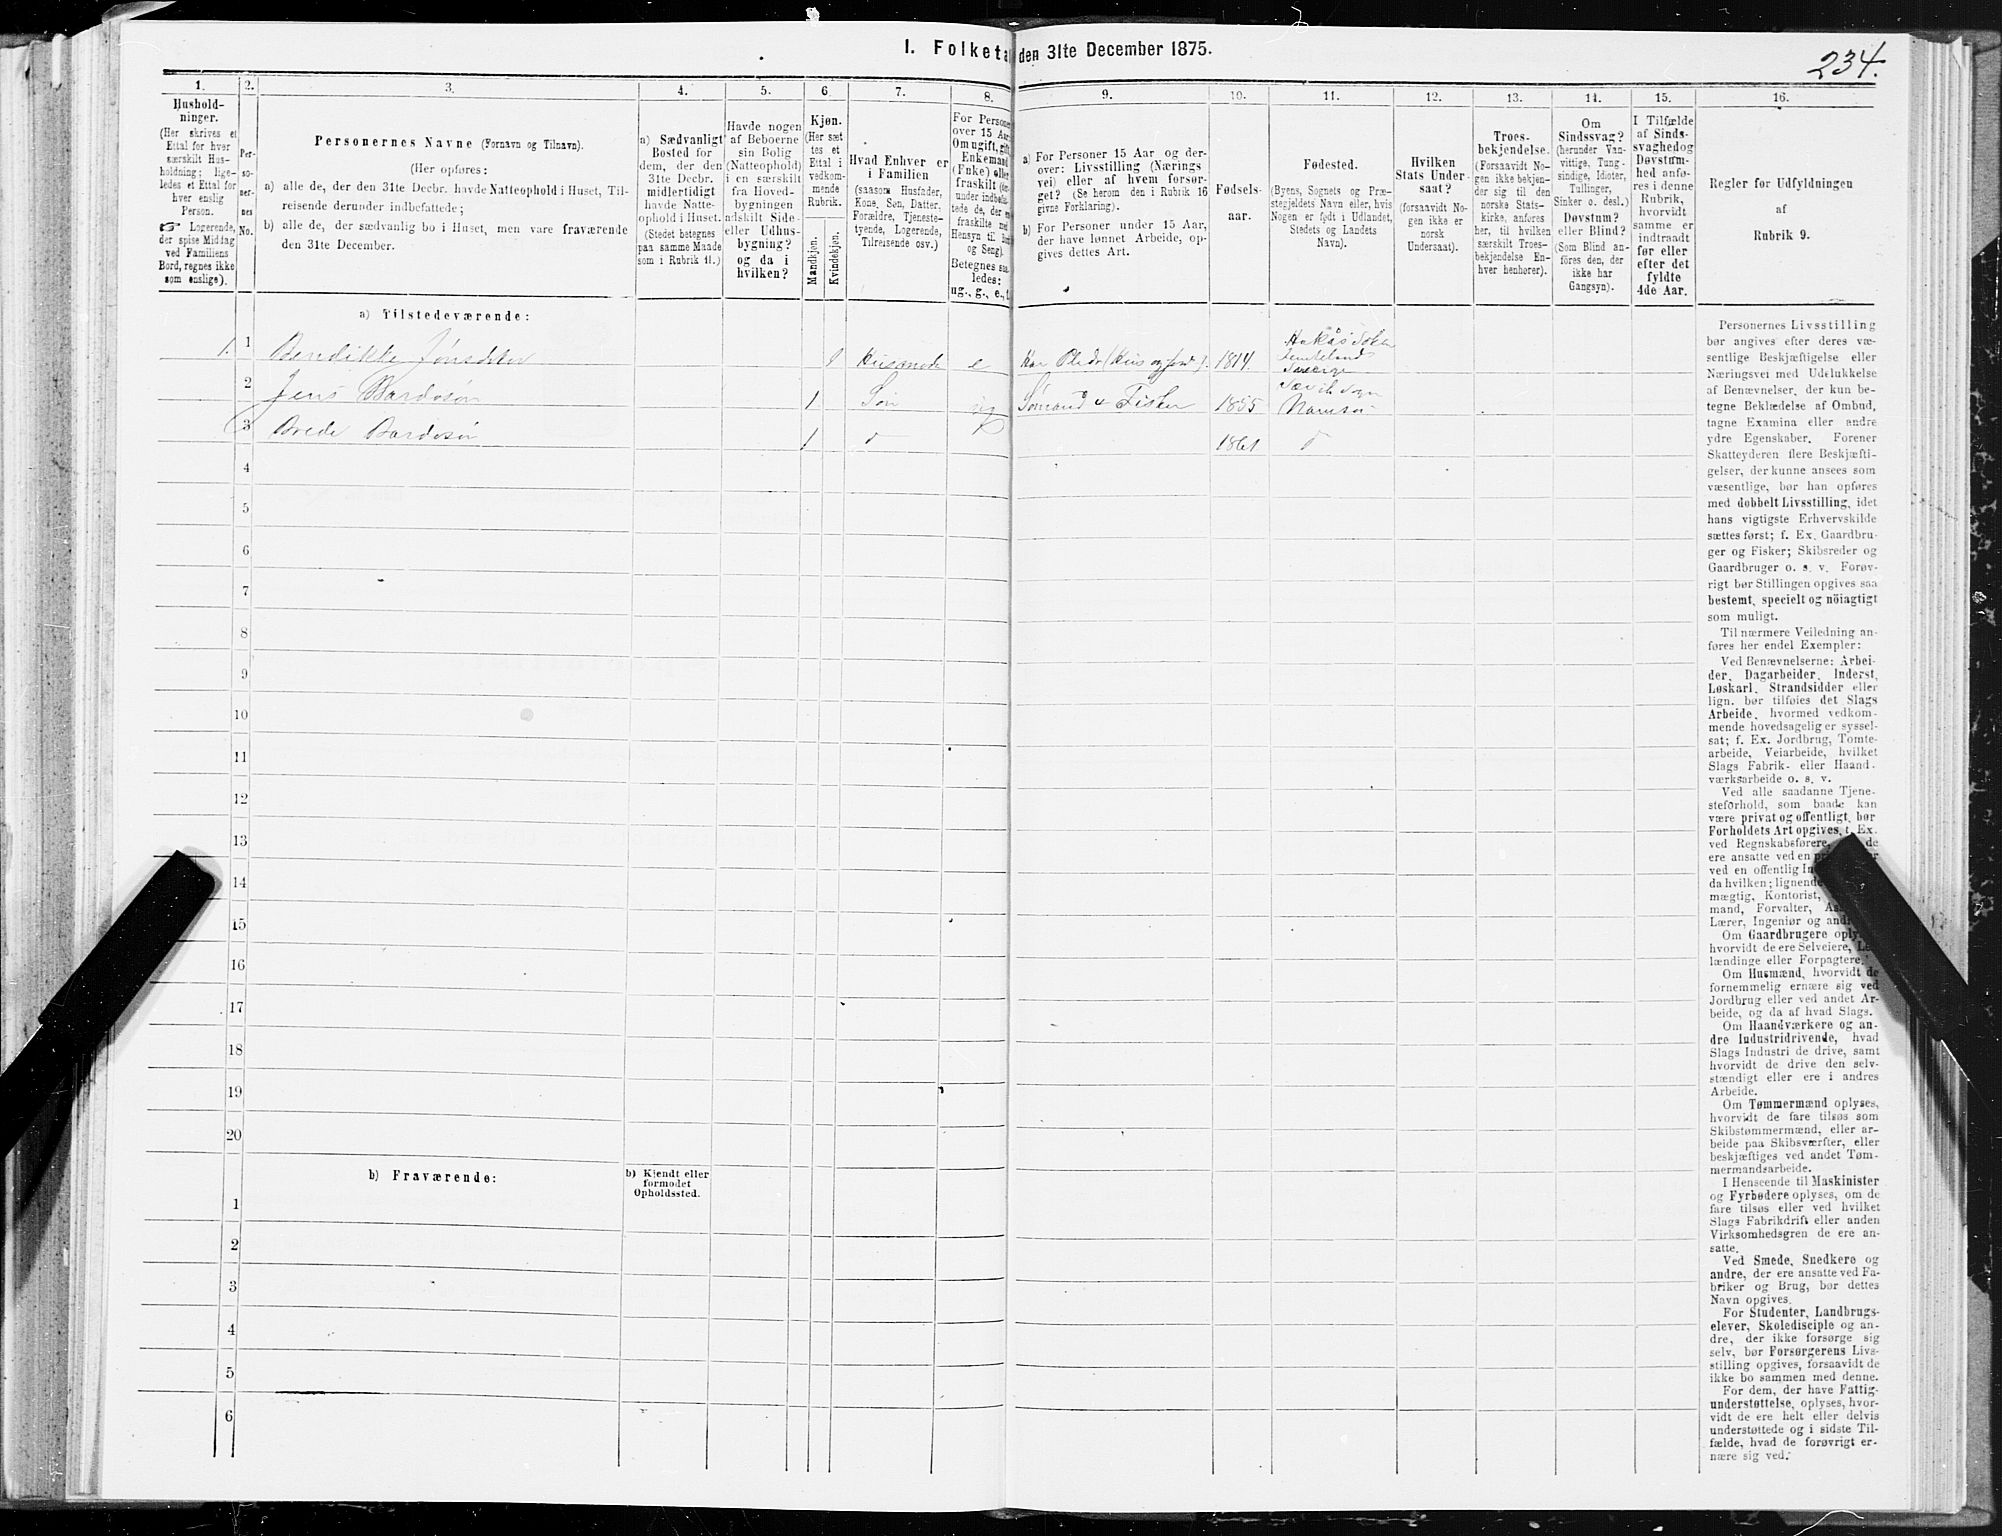 I. Folketal den 31te December 1875.
234.
1.
2.
3.
4.
5.
6.
7.
8.
9.
10.
11.
12.
13.
14.
15.
16.
Hushold-
ninger.
(Her skrives et
Ettal for hver
særskilt Hus-
holdning; lige-
ledes et Ettal for
hver enslig
Person.
☞ Logerende,
der spise Middag
ved Familiens
Bord, regnes ikke
som enslige).
Per-
so-
ner-
nes
No.
Personernes Navne (Fornavn og Tilnavn).
(Her opføres:
a) alle de, der den 31te Decbr. havde Natteophold i Huset, Til-
reisende derunder indbefattede;
b) alle de, der sædvanlig bo i Huset, men vare fraværende
den 31te December.
a) Sædvanligt
Bosted for
dem, der den
31te Decbr.
midlertidigt
havde Natte-
ophold i Huset.
(Stedet betegnes
paa samme Maade
som i Rubrik 11.)
Havde nogen
af Beboerne
sin Bolig
(Natteophold)
i en særskilt
fra Hoved-
bygningen
adskilt Side-
eller Udhus-
bygning?
og da i
hvilken?
Kjøn.
(Her sæt
tes et
Ettal i
vedkom-
mende
Rubrik.
Mandkjøn.
Kvindekjøn.
Hvad Enhver er
i Familien
(saasom Husfader,
Kone, Søn, Datter,
Forældre, Tjeneste-
tyende, Logerende,
Tilreisende osv.)
For Persone
over 15 Aar
Om ugift, gift,
Enkemand
(Enke) eller
fraskilt
Betegnes saa-
ledes:
ug., g., e., f.
a) For Personer 15 Aar og der-
over: Livsstilling (Nærings
vei) eller af hvem forsør-
get? (Se herom den i Rubrik 16
givne Forklaring).
b) For Personer under 15 Aar,
der have lønnet Arbeide, op-
gives dettes Art.
Fødsels-
aar.
Fødested.
(Byens, Sognets og Præ-
stegjeldets Navn eller, hvis
Nogen er født i Udlandet,
Stedets og Landets
Navn).
Hvilken
Stats Under-
saat?
(forsaavidt No-
gen ikke er
norsk
Undersaat).
Troes-
bekjendelse.
(Forsaavidt No-
gen ikke bekjen-
der sig til den
norske Stats-
kirke, anføres
her, til hvilken
særskilt Troes-
bekjendelse En-
hver henhører).
Om
Sindssvag?
(herunder Van-
vittige, Tung-
sindige, Idioter,
Tullinger,
Sinker o. desl.)
Døvstum?
eller Blind?
(Som Blind an-
føres den, der
ikke har
Gangsyn).
I Tilfælde
af Sinds-
svaghed og
Døvstum-
hed anfø-
res i denne
Rubrik,
hvorvidt
samme er
indtraadt
før eller
efter det
fyldte
4de Aar.
Regler for Udfyldningen
af
Rubrik 9.
a) Tilstedeværende:
1. 1 Bendikke Jonsdatter 1 Husmode e 1814.
2 Jens Bardosøn 1 Søn ug Sømand & Fisker 1855
3 Brede Bardosøn 1 d 1861 d
4
5
6
7
8
9
10
11
12
13
14
15
16
17
18
19
20
b) Fraværende:
b) Kjendt eller
formodet
Opholdssted.
1
2
3
4
5
6
Personernes Livsstilling
bør angives efter deres væ-
sentlige Beskjæftigelse eller
Næringsvei med Udelukkelse
af Benævnelser, der kun be-
tegne Beklædelse af Ombud,
tagne Examina eller andre
ydre Egenskaber. Forener
Skatteyderen flere Beskjæfti-
gelser, der kunne ansees som
væsentlige, bør han opføres
med dobbelt Livsstilling, idet
hans vigtigste Erhvervskilde
sættes først; f. Ex. Gaardbru-
ger og Fisker; Skibsreder og
Gaardbruger o. s. v. Forøv-
rigt bør Stillingen opgives saa
bestemt, specielt og nöiagtigt
som muligt.
Til nærmere Veiledning an-
føres her endel Exempler:
Ved Benævnelserne: Arbei-
der, Dagarbeider, Inderst,
Løskarl, Strandsidder eller
lign. bør tilføies det Slags
Arbeide, hvormed vedkom-
mende hovedsagelig er syssel-
sat; f. Ex. Jordbrug, Tomte-
arbeide, Veiarbeide, hvilket
Slags Fabrik- eller Haand-
værksarbeide o. s. v.
Ved alle saadanne Tjene-
steforhold, som baade kan
være privat og offentligt, bør
Forholdets Art opgives, t. Ex.
ved Regnskabsførere,
ere ansatte ved en
ved en offentlig
da hvilken; lignende
mægtig, Kontorist,
mand, Forvalter,
Lærer, Ingeniør og
Om Gaardbrugere oply-
hvorvidt de ere Selveiere, Lei-
lændinge eller Forpagtere.
Om Husmænd, hvorvidt de
fornemmelig ernære sig ved
Jordbrug eller ved andet Ar-
beide, og da af hvad Slags.
Om Haandværkere og an-
dre Industridrivende, hvad
Slags Industri de drive, samt
hvorvidt de drive den selv-
stændigt eller ere i andres
Arbeide.
Om Tømmermænd oplyses,
hvorvidt de fare tilsøs som
Skibstømmermænd, eller ar-
beide paa Skibsværfter, eller
beskjæftiges ved andet Tøm-
mermandsarbeide.
I Henseende til Maskinister
og Fyrbødere oplyses, om de
fare tilsøs eller ved hvilket
Slags Fabrikdrift eller anden
Virksomhedsgren de ere an-
satte.
Ved Smede, Snedkere og
andre, der ere ansatte ved Fa-
briker og Brug, bør dettes
Navn opgives.
For Studenter, Landbrugs-
elever, Skoledisciple og an-
dre, der ikke forsørge sig
selv, bør Forsørgerens Livs-
stilling opgives, forsaavidt de
ikke bo sammen med denne.
For dem, der have Fattig-
understøttelse, oplyses, hvor-
vidt de ere helt eller delvis
understøttede og i sidste Til-
fælde, hvad de forøvrigt er-
nære sig ved.